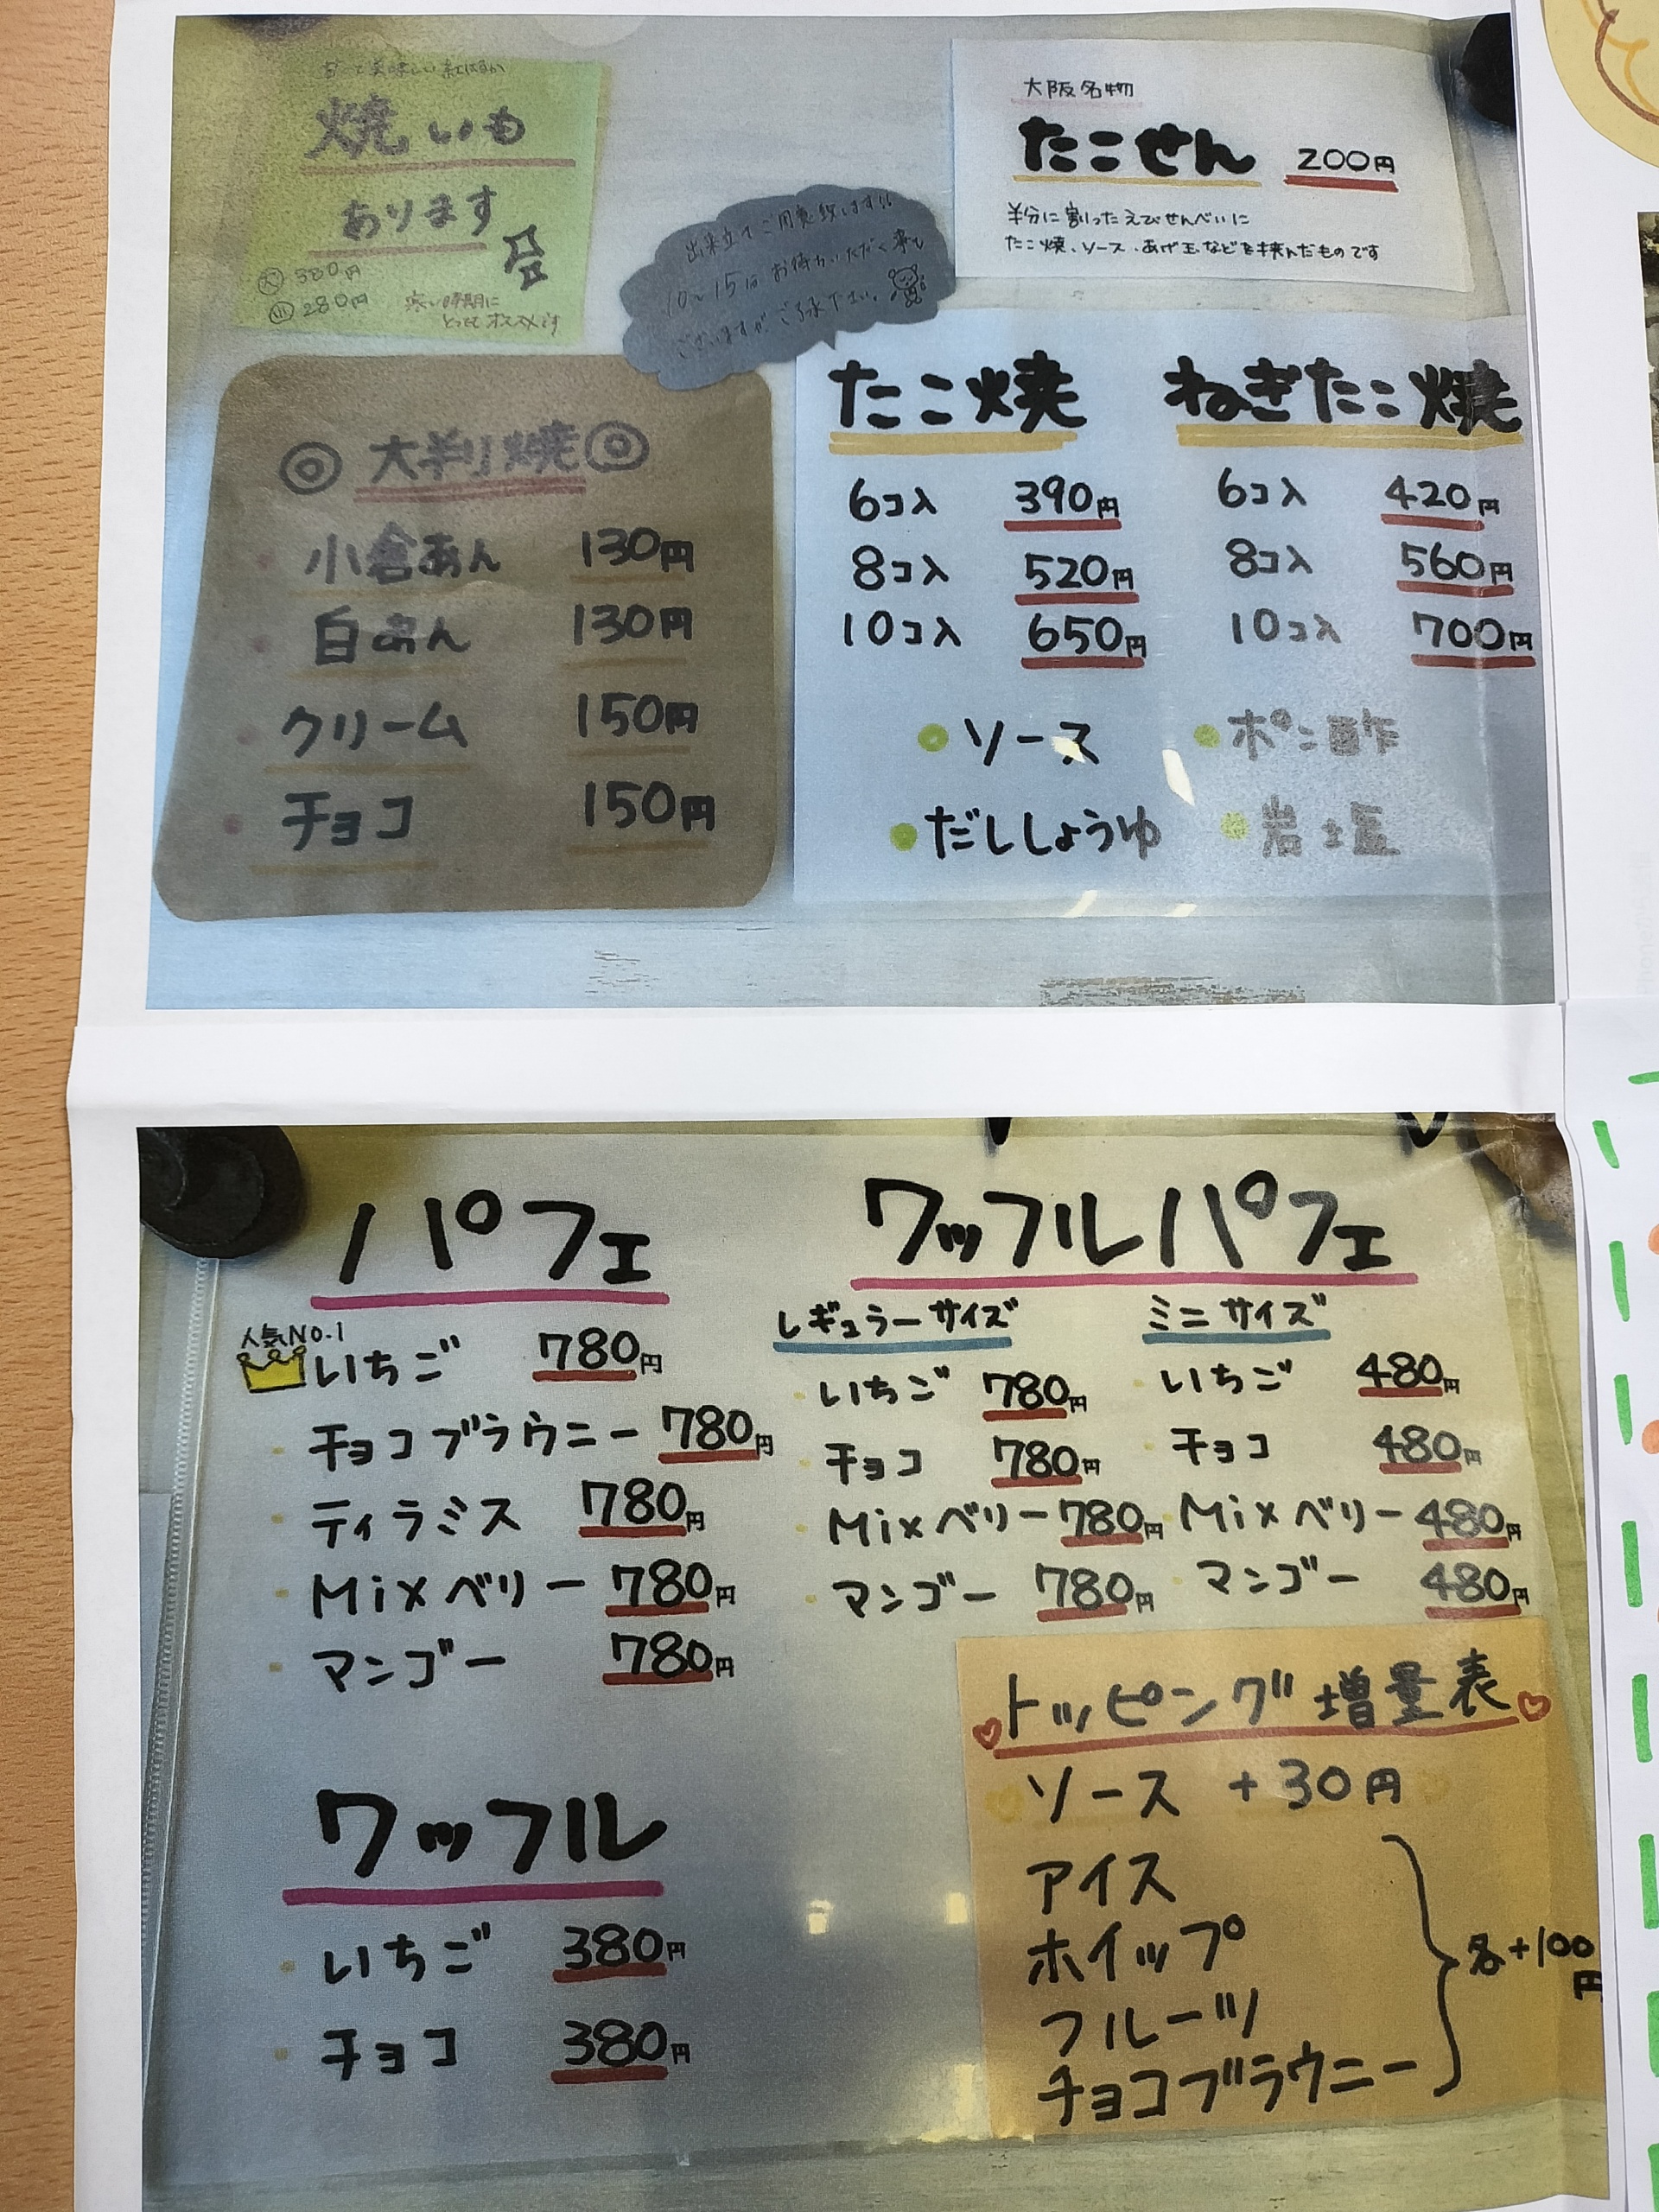 美味しい紅はるか
焼いも
あります
大 380円
小 280円
寒い時期に
とってもオススメです
出来立てご用意致します!!
10〜15分お待ちいただく事も
ございますが、ご了承下さい。
大阪名物
たこせん 200円
半分に割ったえびせんべいに
たこ焼、ソース、あげ玉などを挟んだものです
大判焼
小倉あん 130円
白あん 130円
クリーム 150円
チョコ 150円
たこ焼
6コ入 390円
8コ入 520円
10コ入 650円
ねぎたこ焼
6コ入 420円
8コ入 560円
10コ入 700円
ソース
ポン酢
だししょうゆ
岩塩
パフェ
人気NO.1
いちご 780円
チョコブラウニー 780円
ティラミス 780円
Mixベリー 780円
マンゴー 780円
ワッフルパフェ
レギュラーサイズ
いちご 780円
チョコ 780円
Mixベリー 780円
マンゴー 780円
ミニサイズ
いちご 480円
チョコ 480円
Mixベリー 480円
マンゴー 480円
ワッフル
いちご 380円
チョコ 380円
トッピング増量表
ソース +30円
アイス
ホイップ
フルーツ
チョコブラウニー
各+100
円